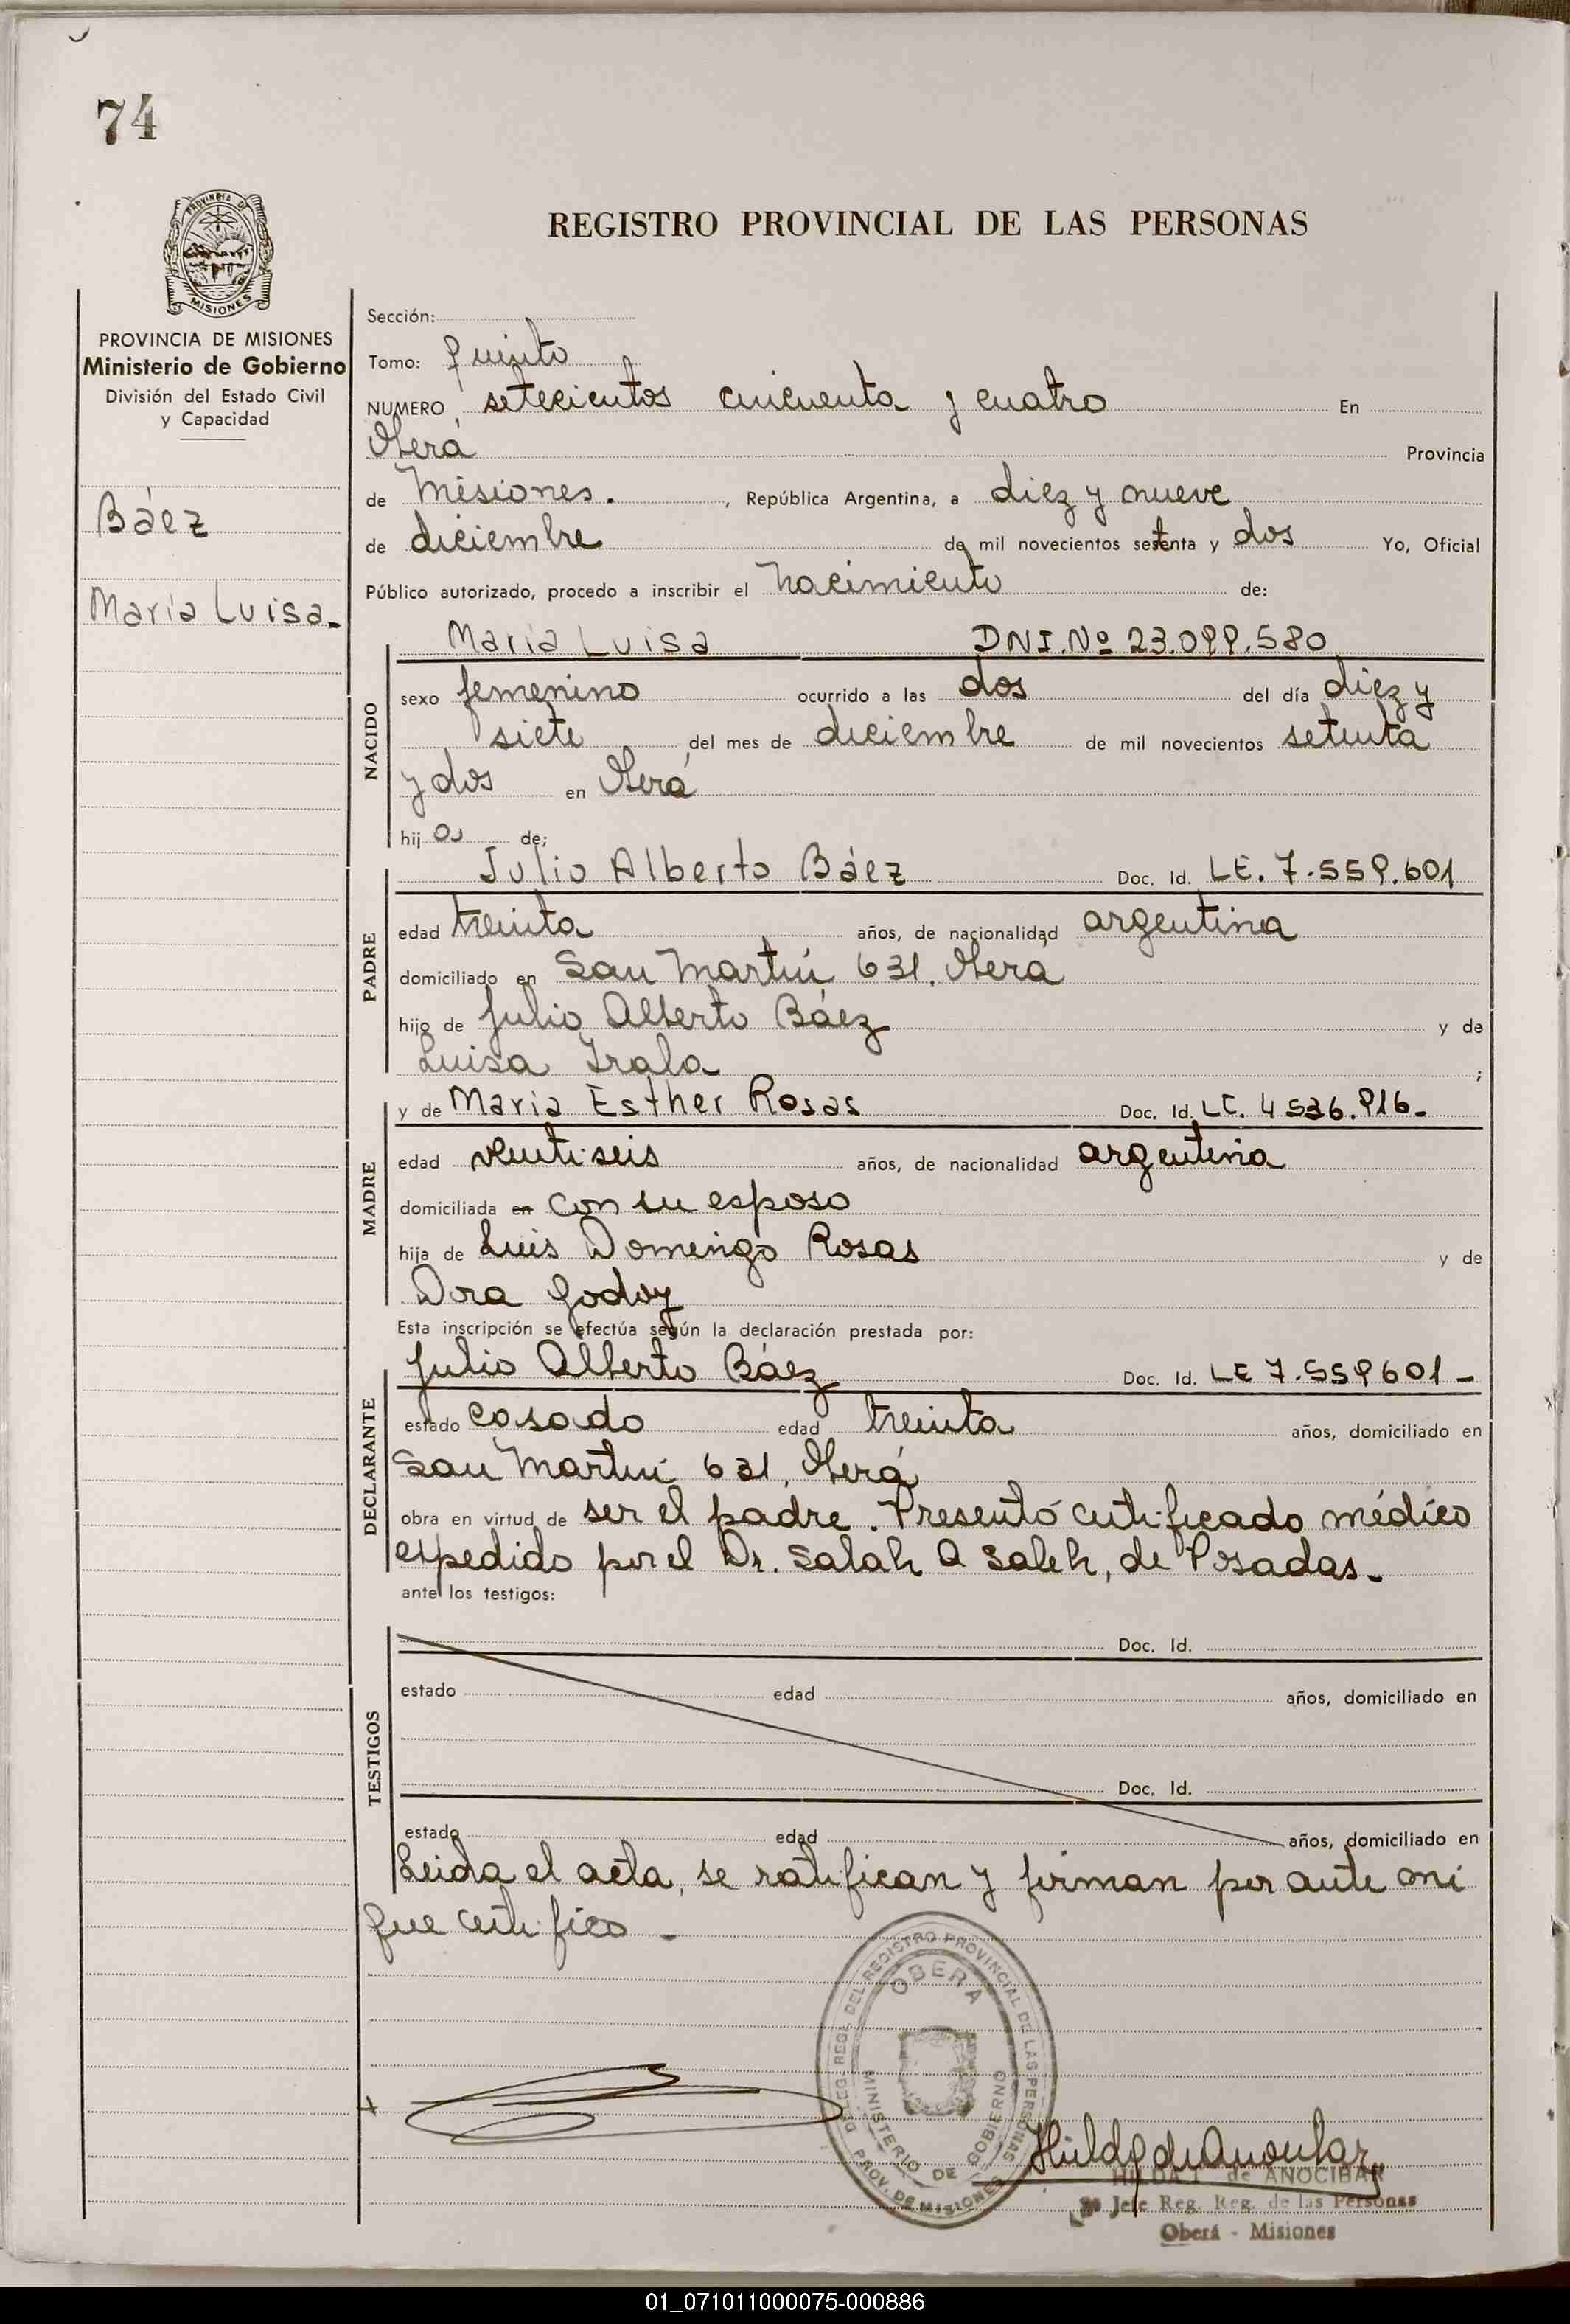 74
PROVINCIA DE
MISIONES
REGISTRO PROVINCIAL DE LAS PERSONAS
PROVINCIA DE MISIONES
Ministerio de Gobierno
División del Estado Civil
y Capacidad
Báez
María Luisa.-
Sección:
Tomo: quinto
NUMERO setecientos cincuenta y cuatro En
Oberá Provincia
de Misiones. , República Argentina, a diez y nueve
de diciembre de mil novecientos setenta y dos Yo, Oficial
Público autorizado, procedo a inscribir el nacimiento de:
NACIDO
María Luisa DNI. Nº 23.099.580
sexo femenino ocurrido a las dos del día diez y
siete del mes de diciembre de mil novecientos setenta
y dos en Oberá
hija de;
PADRE
Julio Alberto Báez Doc. Id. LE. 7.559.601
edad treinta años, de nacionalidad argentina
domiciliado en San Martín 631, Oberá
hijo de Julio Alberto Báez y de
Luisa Irala ;
MADRE
y de María Esther Rosas Doc. Id. LC. 4536.916-
edad veintiseis años, de nacionalidad argentina
domiciliada en con su esposo
hija de Luis Domingo Rosas y de
Dora Godoy
Esta inscripción se efectúa según la declaración prestada por:
DECLARANTE
Julio Alberto Báez Doc. Id. LE 7.559601-
estado casado edad treinta años, domiciliado en
San Martín 631, Oberá
obra en virtud de ser el padre. Presentó certificado médico
expedido por el Dr. Salah A Saleh, de Posadas.-
ante los testigos:
TESTIGOS
Doc. Id.
estado edad años, domiciliado en
Doc. Id.
estado edad años, domiciliado en
Leida el acta, se ratifican y firman por ante mi
que certifico-
DELEG. REG. DEL REGISTRO PROVINCIAL DE LAS PERSONAS
OBERA
MINISTERIO DE GOBIERNO
PROV. DE MISIONES
HILDA de ANOCIBAR
Jefe Reg. Reg. de las Personas
Oberá - Misiones
01_071011000075-000886